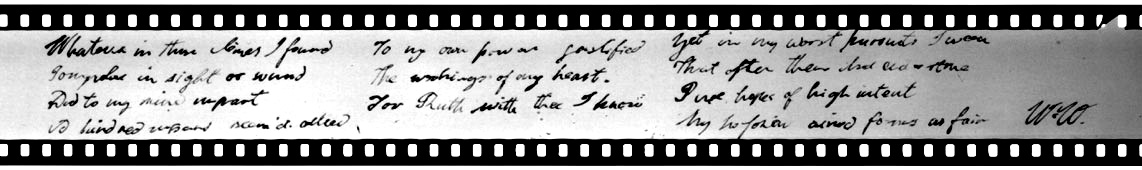 Whatever in those climes I found
Irregular in sight or sound
Did to my mind impart
A kindred seem'd allied
To my own power justified
The workings of my heart.
For Ruth with thee I know
Yet in my worst pursuits I ween
That often there did
Pure hopes of high intent
My amid forms so fair
W.W.